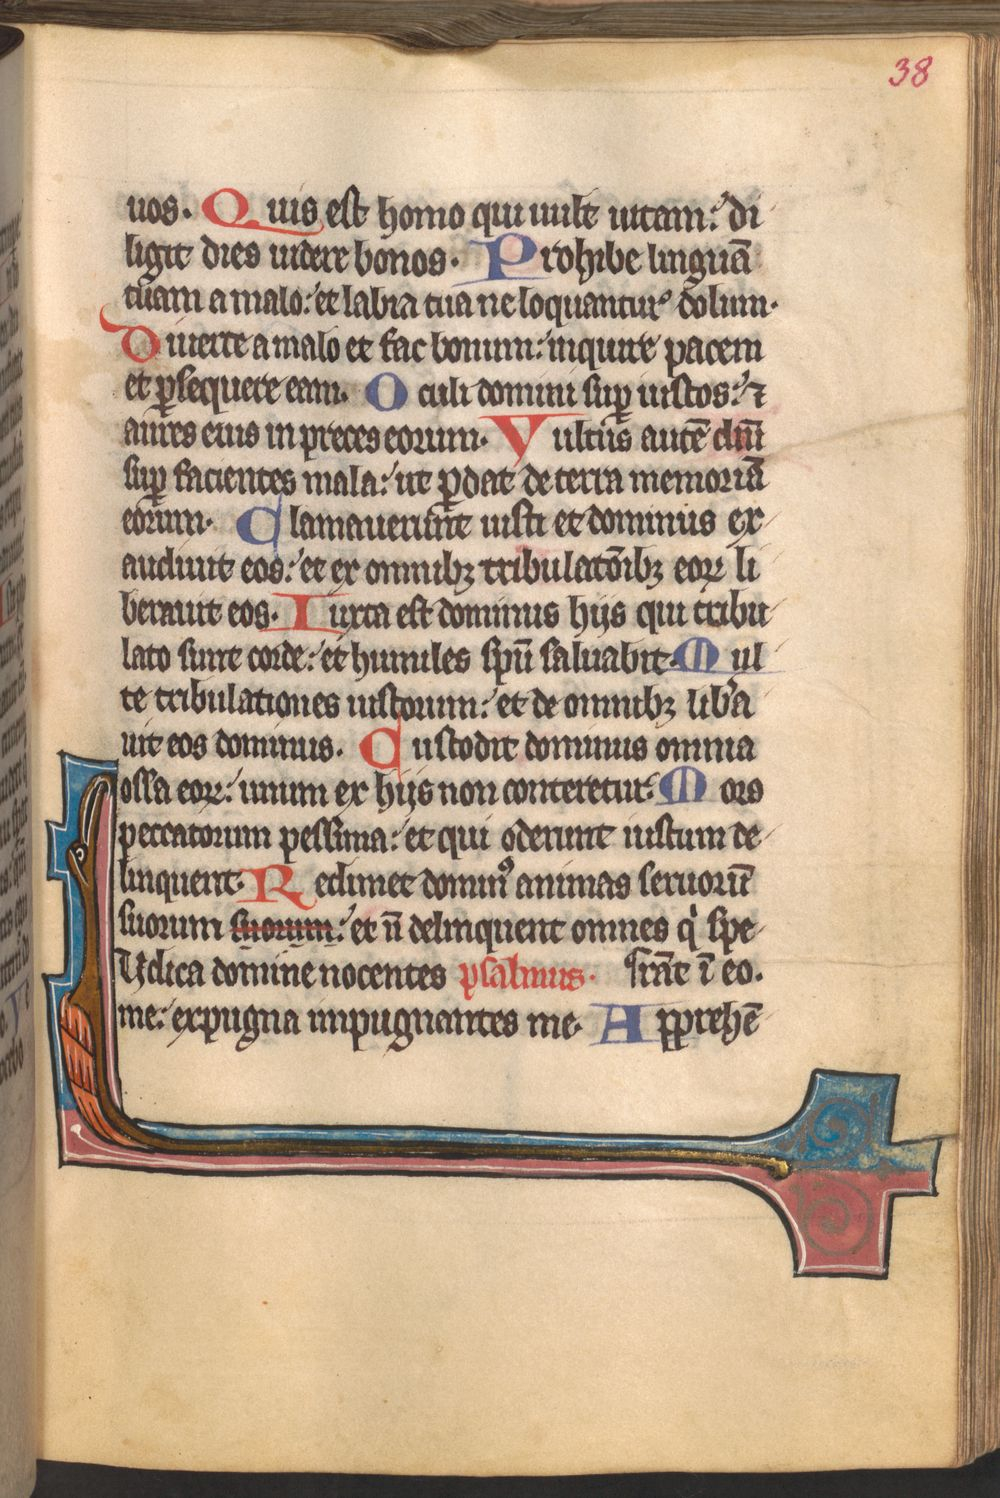 38
uos. Quis est homo qui uult uitam: di
ligit dies uidere bonos. Prohibe linguā
tuam a malo: et labia tua ne loquantur dolum.
Diuerte a malo et fac bonum: inquire pacem
et ꝑsequere eam. Oculi domini suꝑ iustos: ⁊
aures eius in preces eorum. Vultus autē dn̄i
suꝑ facientes mala: ut ꝑdat de terra memoriā
eorum. Clamauerunt iusti et dominus ex
audiuit eos: et ex omnibꝫ tribulatōibꝫ eoꝝ li
berauit eos. Iuxta est dominus hijs qui tribu
lato sunt corde: et humiles spū saluabit. Mul
te tribulationes iustorum: et de omnibꝫ lib'a
uit eos dominus. Custodit dominus omnia
ossa eoꝝ: unum ex hijs non conteretur. Mors
peccatorum pessima: et qui oderunt iustum de
linquent. Redimet dominꝰ animas seruorū
suorum suorum: et n̄ delinquent omnes q' spe
Iudica domine nocentes psalmus. rāt ī eo.
me: expugna impugnantes me. Apprehē